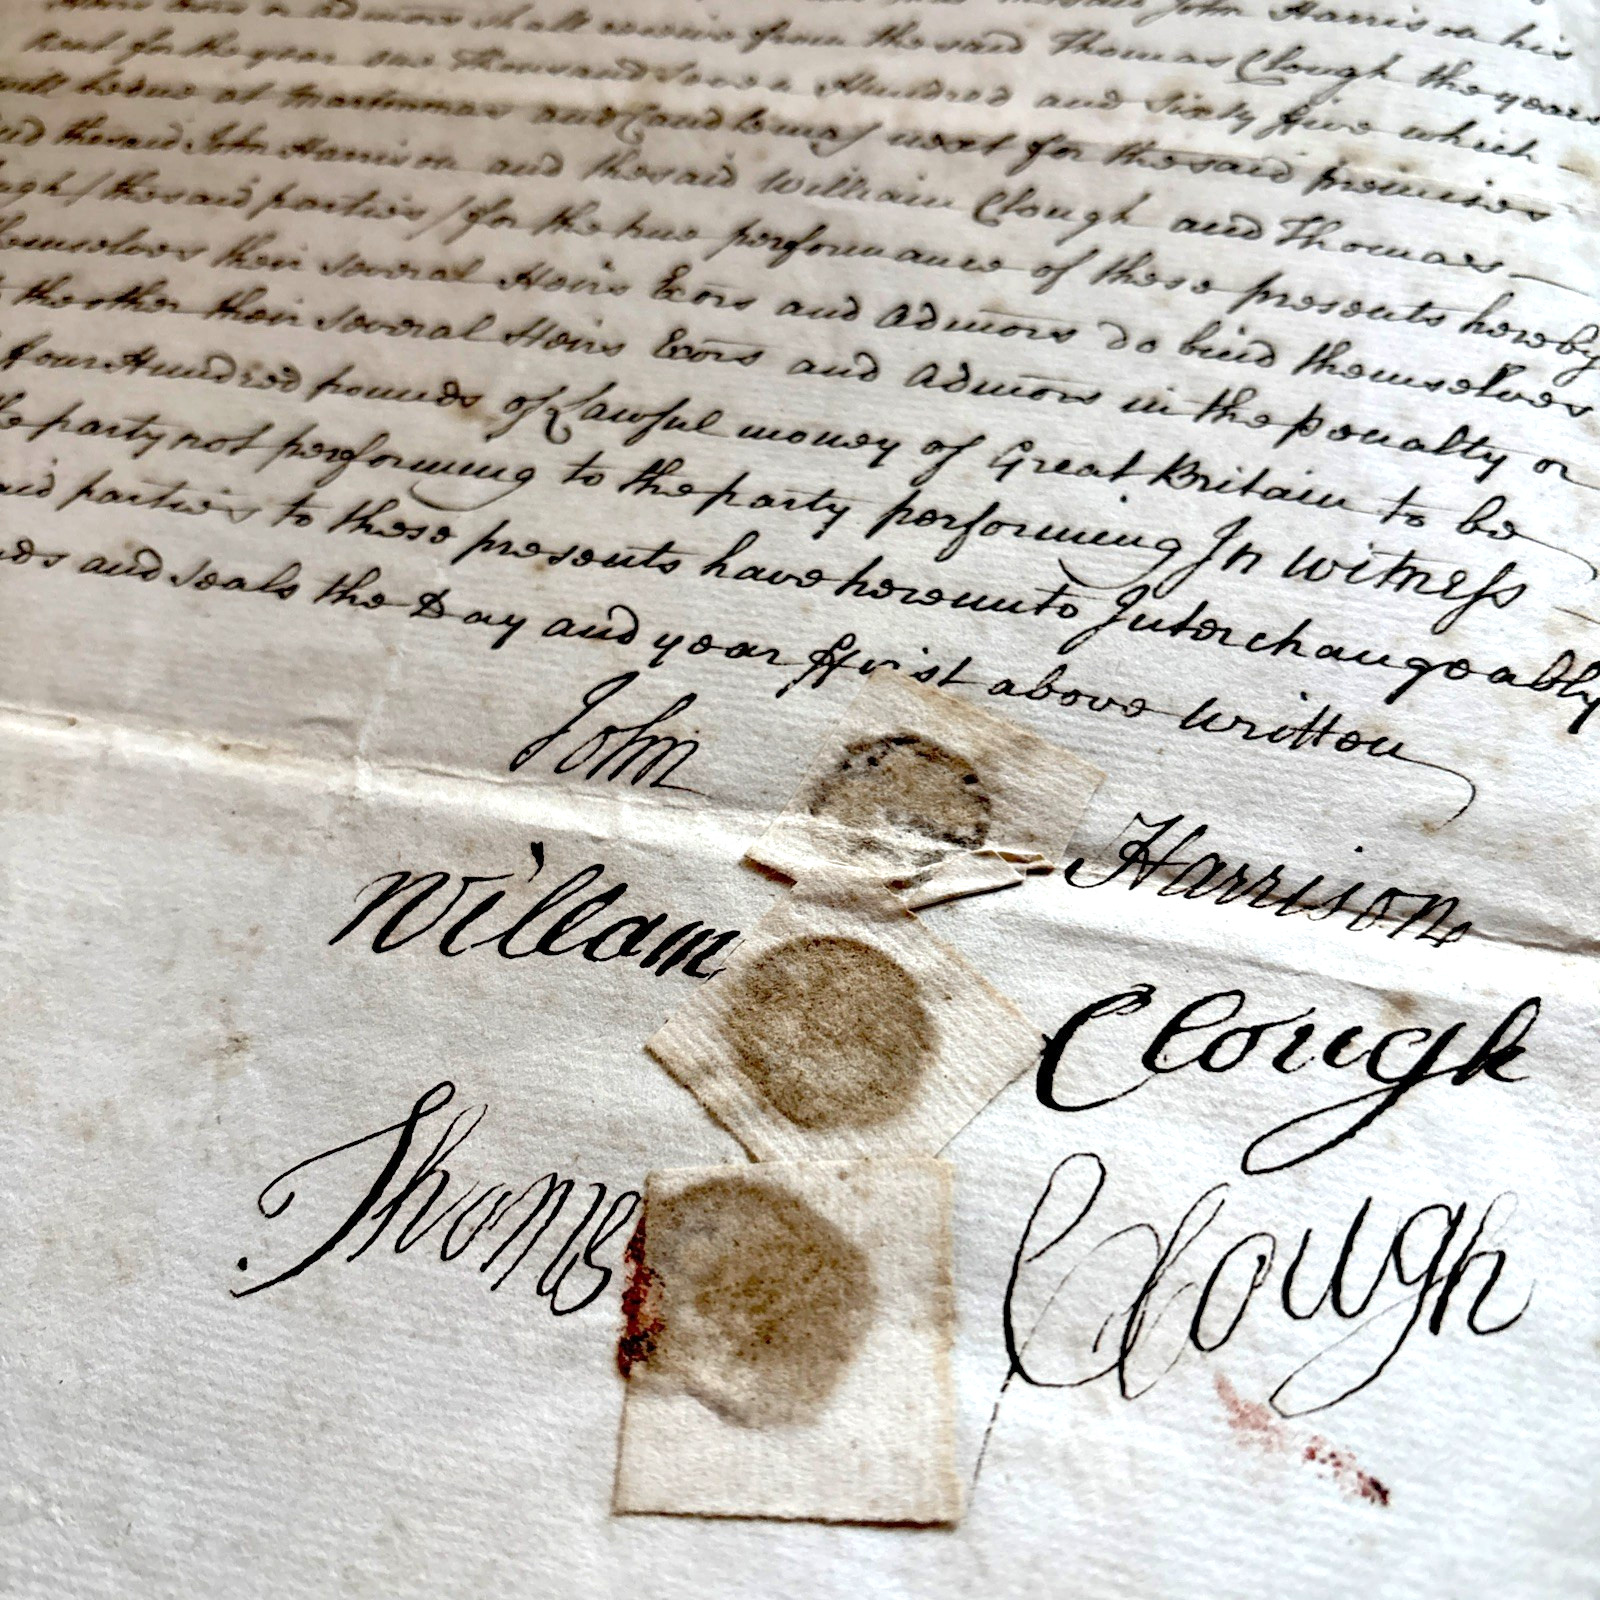 Admors shall receive from the said Thomas Clough the years
Rent for the year one Thousand Seven Hundred and Sixty five which
will bedue at Martinmas and Candlemas next for the said premises
and the said John Harrison and the said William Clough and Thomas
ugh / the said parties / for the true performance of these presents hereby
themselves their several Heirs Exors and Admors do bind themselves
the other their several Heirs Exors and Admors in the penalty or
four Hundred pounds of Lawful money of Great Britain to be
the party not performing to the party performing In Witness
aid parties to these presents have hereunto Interchangeably
nds and Seals the Day and year ffirst above written
John Harrison
Willam Clough
Thoms Clough